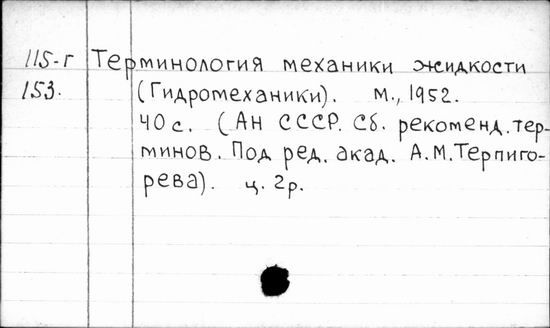 115-г Терминология механики жидкости
153. (Гидромеханики). М., 1952.
40 с. (АН СССР. Сб. рекоменд. тер-
минов. Под ред. акад. А.М.Терпиго-
рева). ц. 2р.